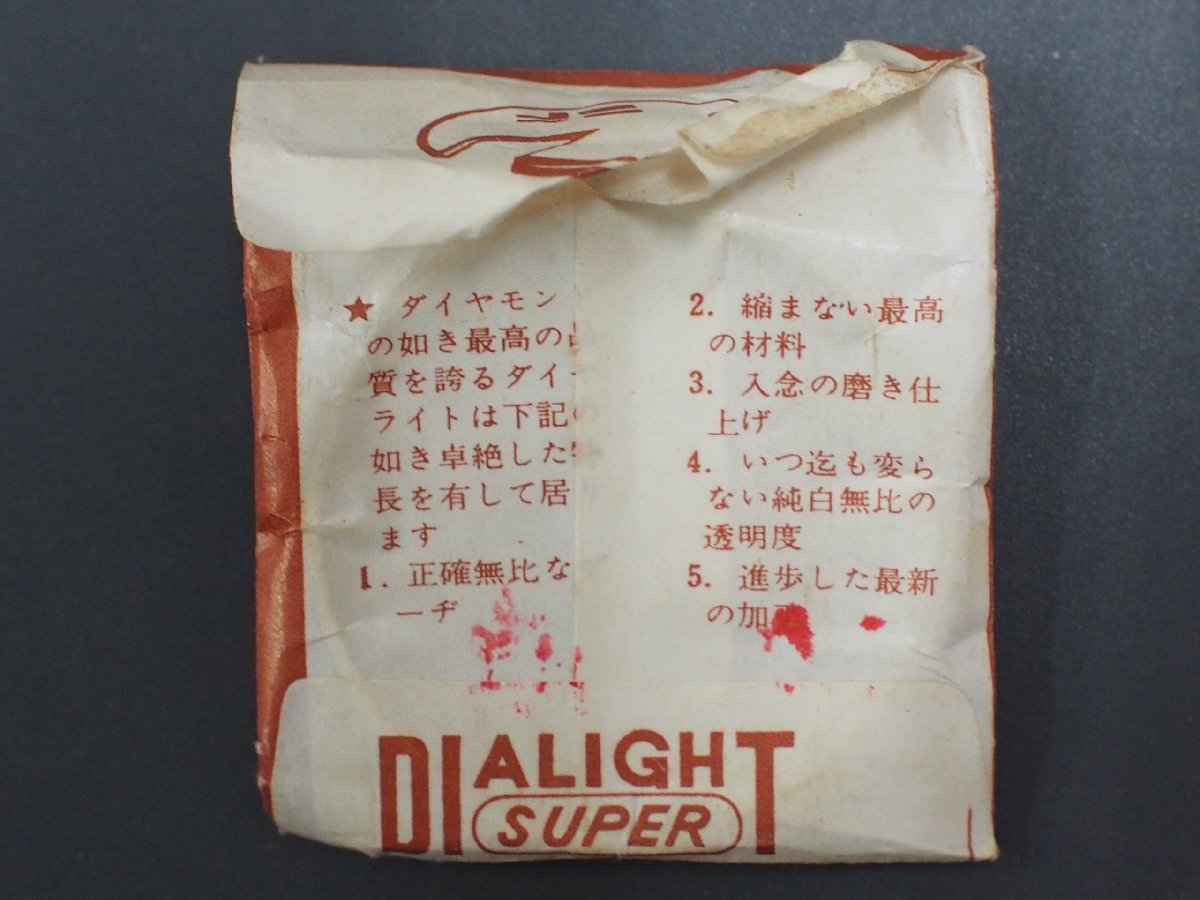 ★ ダイヤモン
の如き最高の品
質を誇るダイ
ライトは下記の
如き卓絶した特
長を有して居
ます
1. 正確無比な
ーヂ
2. 縮まない最高
の材料
3. 入念の磨き仕
上げ
4. いつ迄も変ら
ない純白無比の
透明度
5. 進歩した最新
の加
DIALIGHT
SUPER